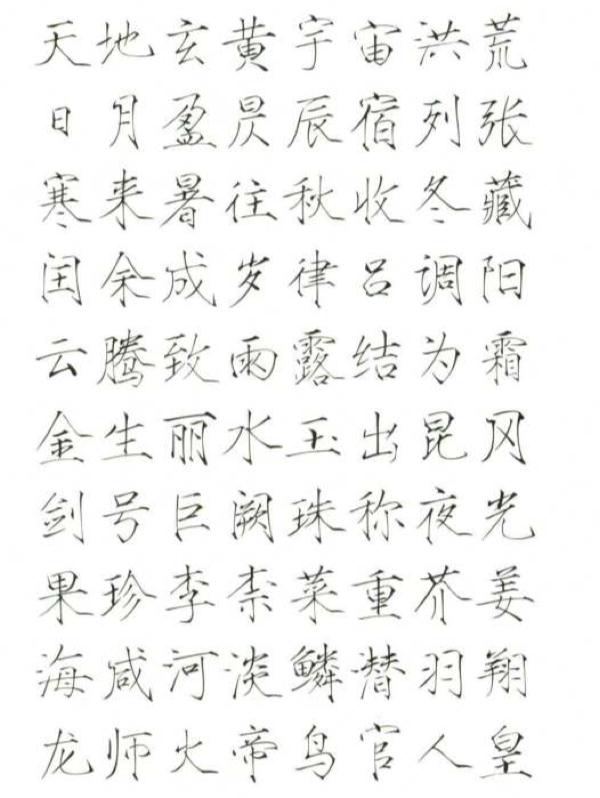 天地玄黄宇宙洪荒
日月盈昃辰宿列张
寒来暑往秋收冬藏
闰余成岁律吕调阳
云腾致雨露结为霜
金生丽水玉出昆冈
剑号巨阙珠称夜光
果珍李柰菜重芥姜
海咸河淡鳞潜羽翔
龙师火帝鸟官人皇